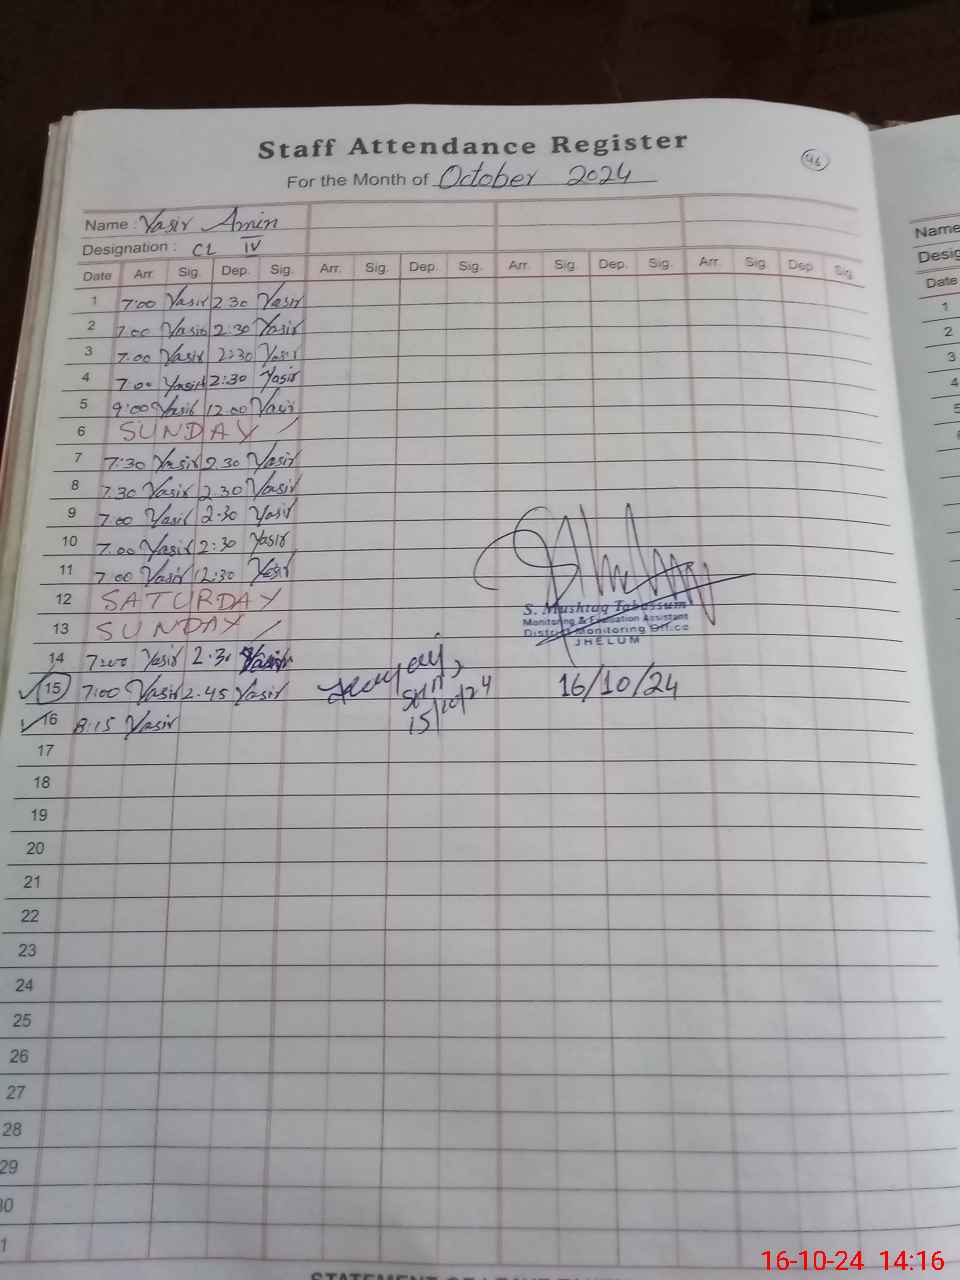 Staff Attendance Register
46
For the Month of October 2024
Name : Yasir Amin
Designation : CL IV
Date Arr. Sig. Dep. Sig. Arr. Sig. Dep. Sig. Arr. Sig. Dep. Sig. Arr. Sig Dep Sig
1 7:00 Yasir 2 30 Yasir
2 7.00 Yasir 2:30 Yasir
3 7.00 Yasir 2:30 Yasir
4 7.00 Yasir 2:30 Yasir
5 9:00 Yasir 12.00 Yasir
6 SUNDAY
7 7:30 Yasir 2.30 Yasir
8 7.30 Yasir 2.30 Yasir
9 7.00 Yasir 2.30 Yasir
10 7.00 Yasir 2:30 Yasir
11 7.00 Yasir 12:30 Yasir
12 SATURDAY
13 SUNDAY
S. Mushtaq Tabassum
Monitoring & Evaluation Assistant
District Monitoring Office
JHELUM
14 7:00 Yasir 2.30 Yasir
15 7:00 Yasir 2.45 Yasir
15/10/24
16/10/24
16 8:15 Yasir
17
18
19
20
21
22
23
24
25
26
27
28
29
30
1
Name
Desig
Date
1
2
3
4
5
16-10-24 14:16